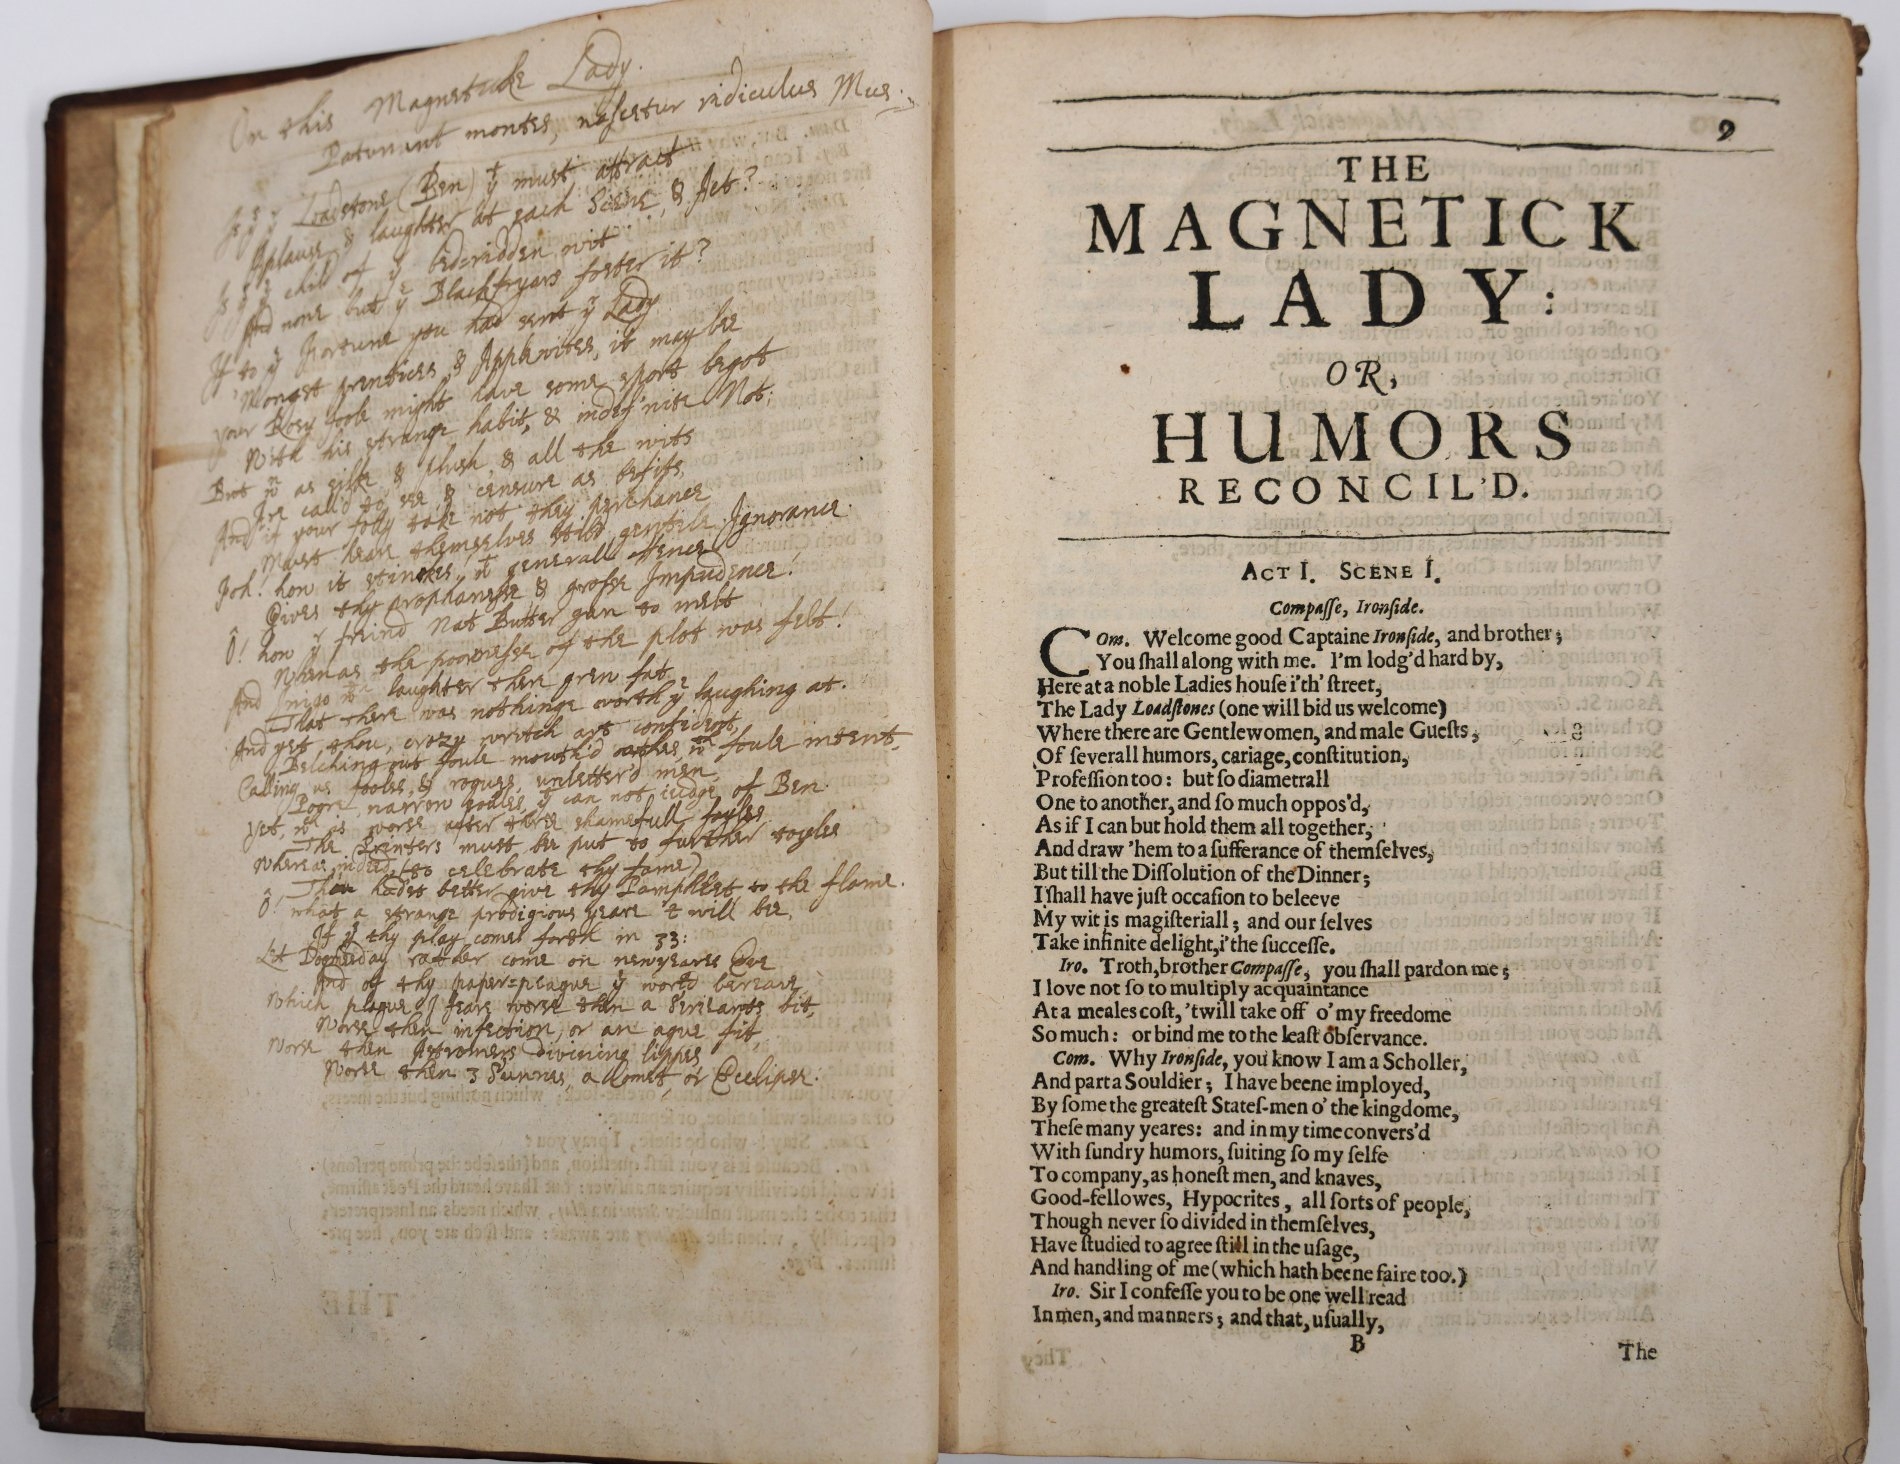 On this Magneticke Lady.
Paturiunt montes, nascetur ridiculus Mus.
Is yͤ Loadstone (Ben) yͭ must attract
Applause & laughter at each Scene, & Act?
Is yͤ child of yͤ bed=ridden wit
And none but yͤ Blackfryars foster it?
If to yͤ Fortune you had sent yͤ Lady
'Mongst prentices, & Applewives, it may bee
your Rosy foole might have some sport begot
With his strange habit, & indef'nite Not:
But wⁿ as silke & plush, & all the wits
Are call'd to see, & censure as befits,
And if your folly take not they perchance
Must heare themselves stild gentile Ignorance.
Foh! how it stinckes! wͭ generall offence
Gives thy prophanesse & grosse Impudence!
Ô! how yͬ freind Nat Butter gan to melt
Whenas the poornesse of the plot was felt!
And Inigo wͭͪ laughter there grew fat
That there was nothinge worth yͤ laughing at.
And yet thou crazy wretch art confident,
Belching out foule mouth'd wͭͪ foule intent,
Calling us fooles, & rogues, unletter'd men,
Poore narrow soules, yͭ can not iudge of Ben.
Yet, wͨͪ is worse after three shamefull foyles
The Printers must be put to further toyles
Whereas indeed, (to celebrate thy fame)
Thou hadst better give thy Pamphlet to the flame.
Ô! what a strange prodigious yeare t will bee,
If yͭ thy play comes forth in 33:
Let Doomesday rather come on newyeares Eve
And of thy paper=plague yͤ world bereave
Which plague I feare worse then a Serieants bit,
Worse then infection, or an ague fit
Worse then Astromers divining lippes
Worse then 3 Sunnes, a Comet or Ecclipse.
9
THE
MAGNETICK
LADY:
OR,
HUMORS
RECONCIL'D.
ACT I. SCENE I.
Compaſſe, Ironſide.
Com. Welcome good Captaine Ironſide, and brother;
You ſhall along with me. I'm lodg'd hard by,
Here at a noble Ladies houſe i'th' ſtreet,
The Lady Loadſtones (one will bid us welcome)
Where there are Gentlewomen, and male Gueſts,
Of ſeverall humors, cariage, conſtitution,
Profeſſion too: but ſo diametrall
One to another, and ſo much oppos'd,
As if I can but hold them all together,
And draw 'hem to a ſufferance of themſelves,
But till the Diſſolution of the Dinner;
I ſhall have juſt occaſion to beleeve
My wit is magiſteriall; and our ſelves
Take infinite delight, i'the ſucceſſe.
Iro. Troth, brother Compaſſe, you ſhall pardon me;
I love not ſo to multiply acquaintance
At a meales coſt, 'twill take off o' my freedome
So much: or bind me to the leaſt obſervance.
Com. Why Ironſide, you know I am a Scholler,
And part a Souldier; I have beene imployed,
By ſome the greateſt Stateſ-men o' the kingdome,
Theſe many yeares: and in my time convers'd
With ſundry humors, ſuiting ſo my ſelfe
To company, as honeſt men, and knaves,
Good-fellowes, Hypocrites, all ſorts of people,
Though never ſo divided in themſelves,
Have ſtudied to agree ſtill in the uſage,
And handling of me (which hath beene faire too.)
Iro. Sir I confeſſe you to be one well read
In men, and manners; and that, uſually,
B
The